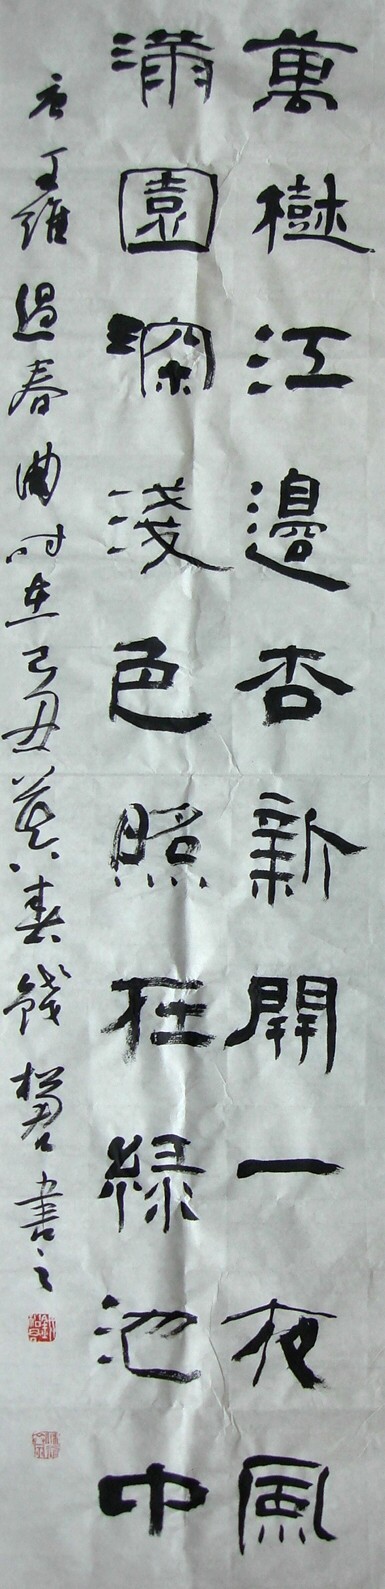 萬樹江邊杏新開一夜風
滿園深淺色照在綠池中
唐王維遇春曲时在己丑莫春錢書之